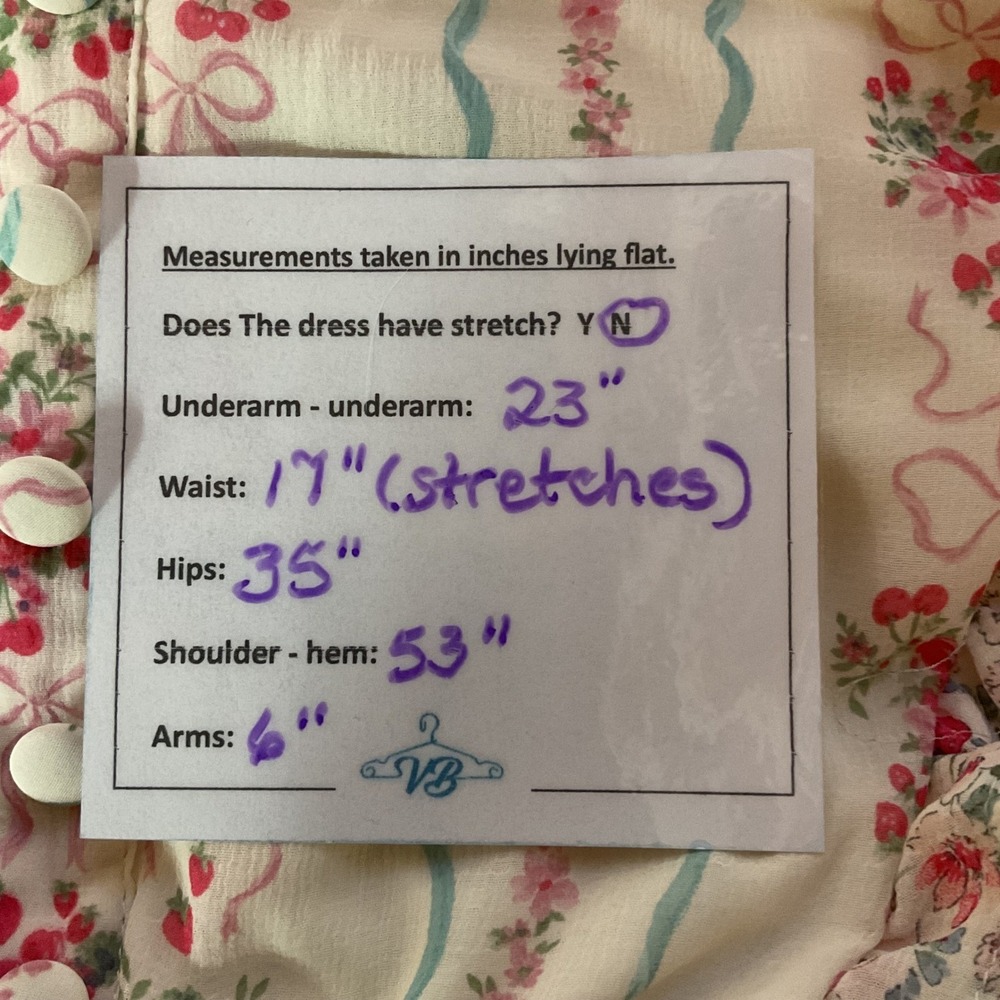 Measurements taken in inches lying flat.
Does The dress have stretch? Y N
Underarm - underarm: 23"
Waist: 17" (stretches)
Hips: 35"
Shoulder - hem: 53"
Arms: 6"
VB